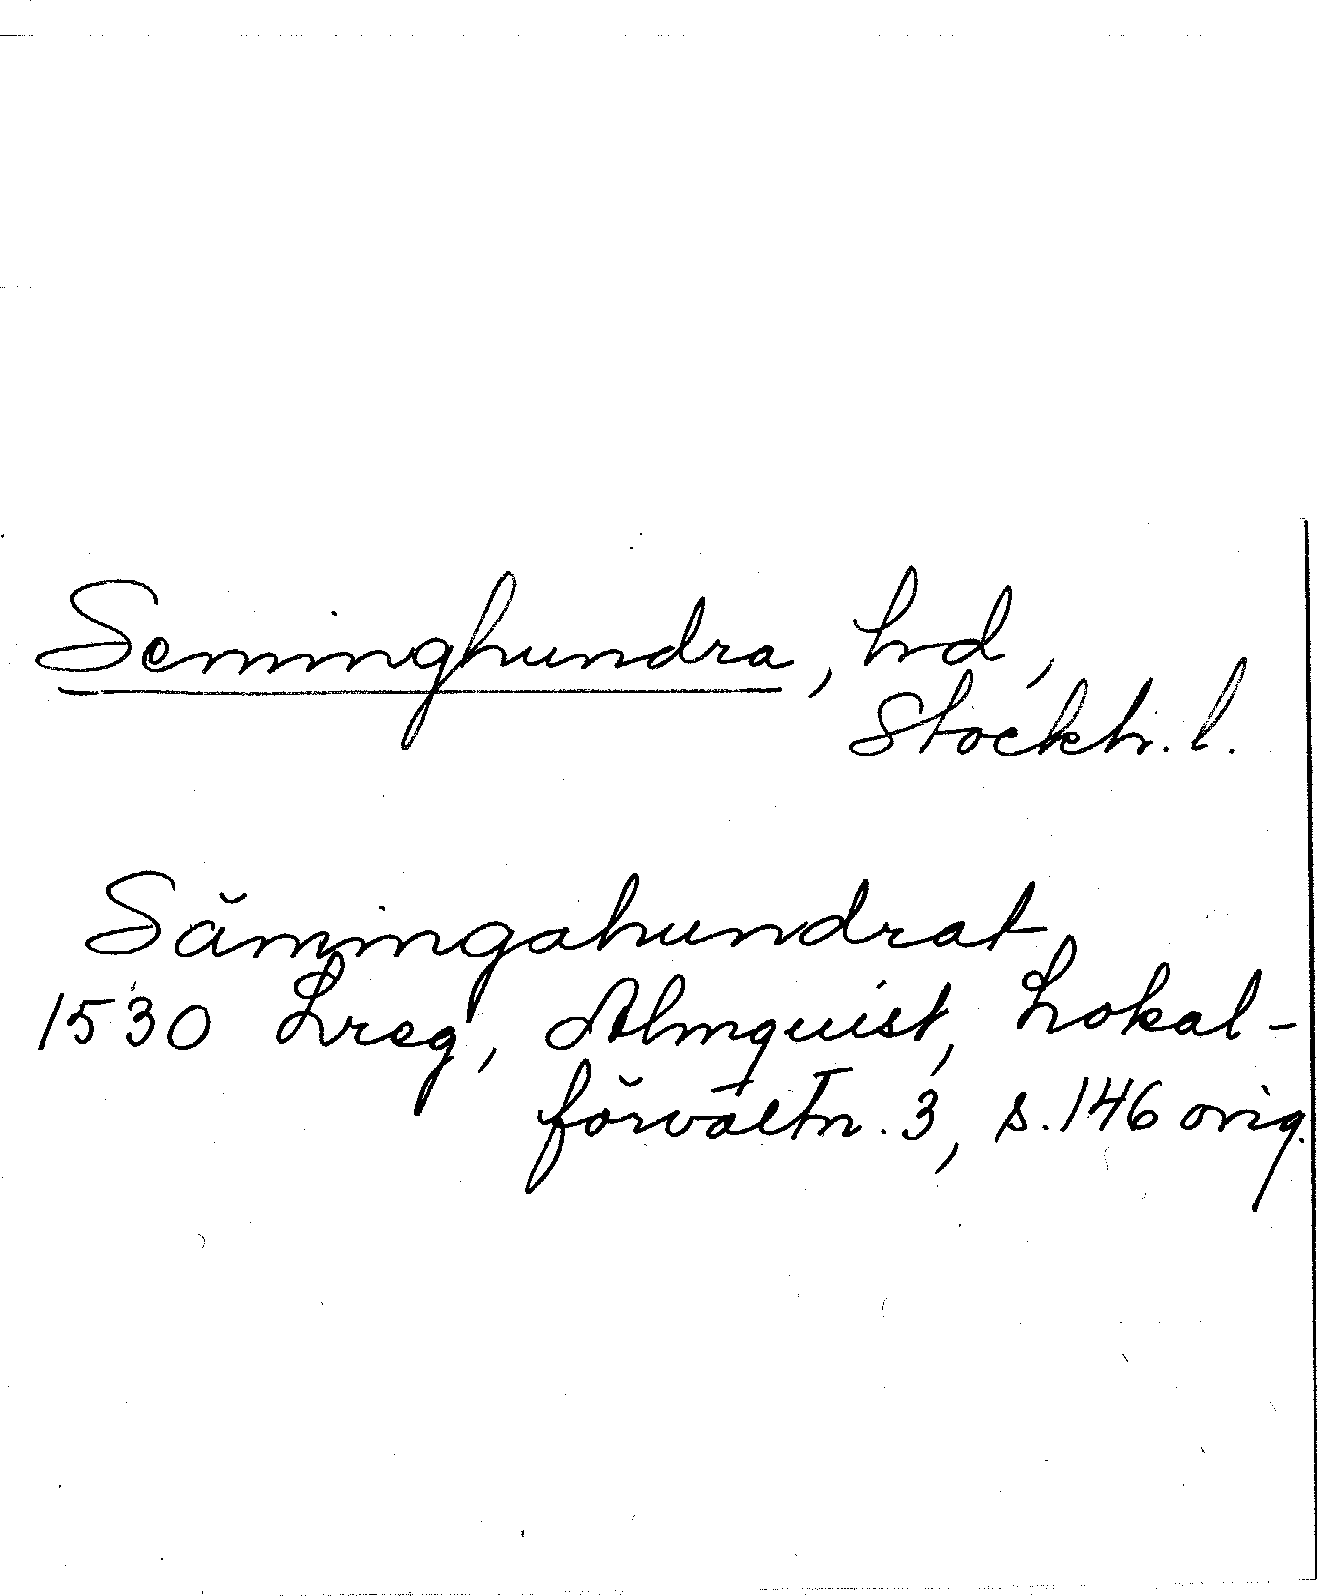 Seminghundra, hd,
Stockh. l.
Sämingahundrat
1530 Lreg, Almquist, Lokal-
förvaltn. 3, s. 146 orig.